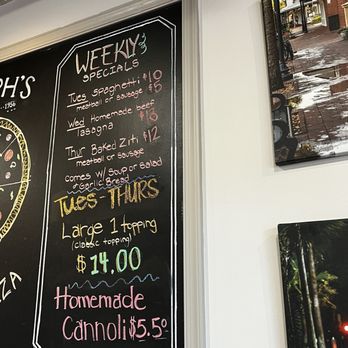 PH'S
1956
ZZA
WEEKLY
SPECIALS
Tues Spaghetti $10
meatball or sausage $5
Wed Homemade beef
lasagna $13
Thur Baked Ziti $12
meatball or sausage
comes w/ soup or salad
+ Garlic Bread
Tues-THURS
Large 1 topping
(classic topping)
$14.00
Homemade
Cannoli $5.50